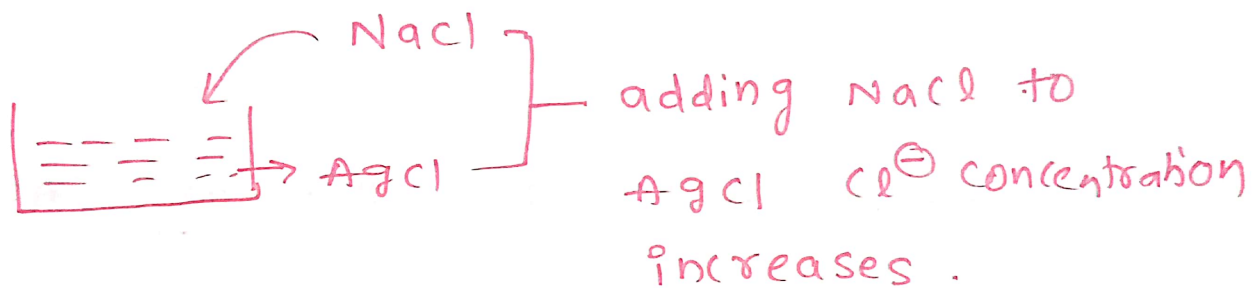 NaCl
adding NaCl to
AgCl
AgCl Cl⊖ concentration
increases.